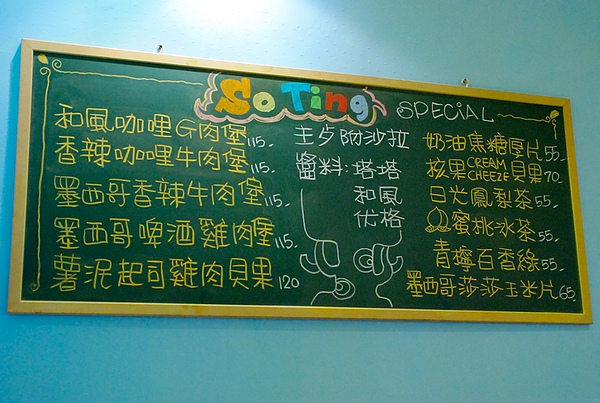 So Ting SPECiAL
和風咖哩G肉堡115.
香辣咖哩牛肉堡115.
墨西哥香辣牛肉堡115.
墨西哥啤酒雞肉煲115.
薯泥起司雞肉貝果120
主步阿沙拉
醬料:塔塔
和風
优格
奶油焦糖厚片55.
核果CREAM CHEEZE貝果70.
日光鳳梨茶55.
蜜桃冰茶55.
青檸百香綠55.
墨西哥莎莎玉米片65.